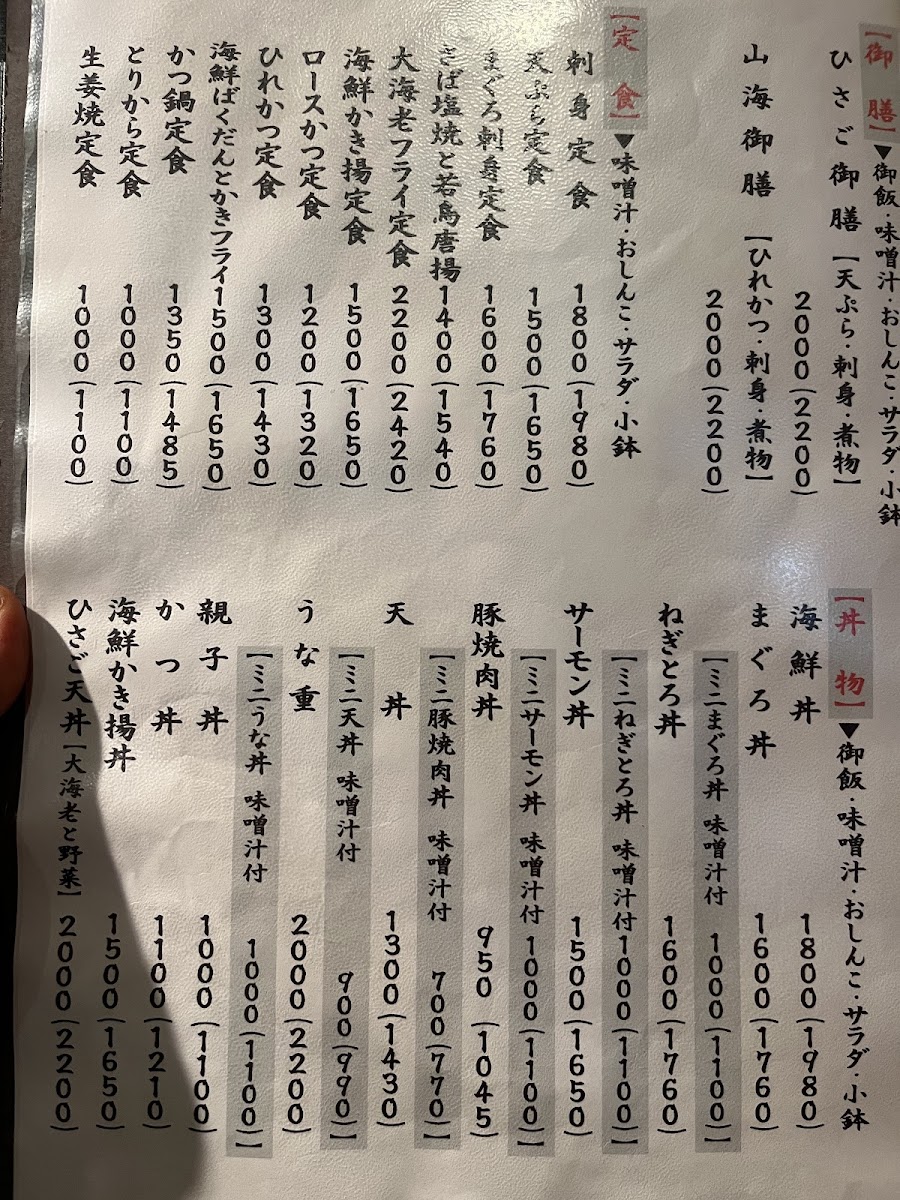 【御膳】▼御飯・味噌汁・おしんこ・サラダ・小鉢
ひさご御膳【天ぷら・刺身・煮物】
2000(2200)
山海御膳【ひれかつ・刺身・煮物】
2000(2200)
【定食】▼味噌汁・おしんこ・サラダ・小鉢
刺身定食 1800(1980)
天ぷら定食 1500(1650)
まぐろ刺身定食 1600(1760)
さば塩焼と若鳥唐揚 1400(1540)
大海老フライ定食 2200(2420)
海鮮かき揚定食 1500(1650)
ロースかつ定食 1200(1320)
ひれかつ定食 1300(1430)
海鮮ばくだんとかきフライ 1500(1650)
かつ鍋定食 1350(1485)
とりから定食 1000(1100)
生姜焼定食 1000(1100)
【丼物】▼御飯・味噌汁・おしんこ・サラダ・小鉢
海鮮丼 1800(1980)
まぐろ丼 1600(1760)
【ミニまぐろ丼 味噌汁付 1000(1100)】
ねぎとろ丼 1600(1760)
【ミニねぎとろ丼 味噌汁付 1000(1100)】
サーモン丼 1500(1650)
【ミニサーモン丼 味噌汁付 1000(1100)】
豚焼肉丼 950(1045)
【ミニ豚焼肉丼 味噌汁付 700(770)】
天丼 1300(1430)
【ミニ天丼 味噌汁付 900(990)】
うな重 2000(2200)
【ミニうな丼 味噌汁付 1000(1100)】
親子丼 1000(1100)
かつ丼 1100(1210)
海鮮かき揚丼 1500(1650)
ひさご天丼【大海老と野菜】 2000(2200)